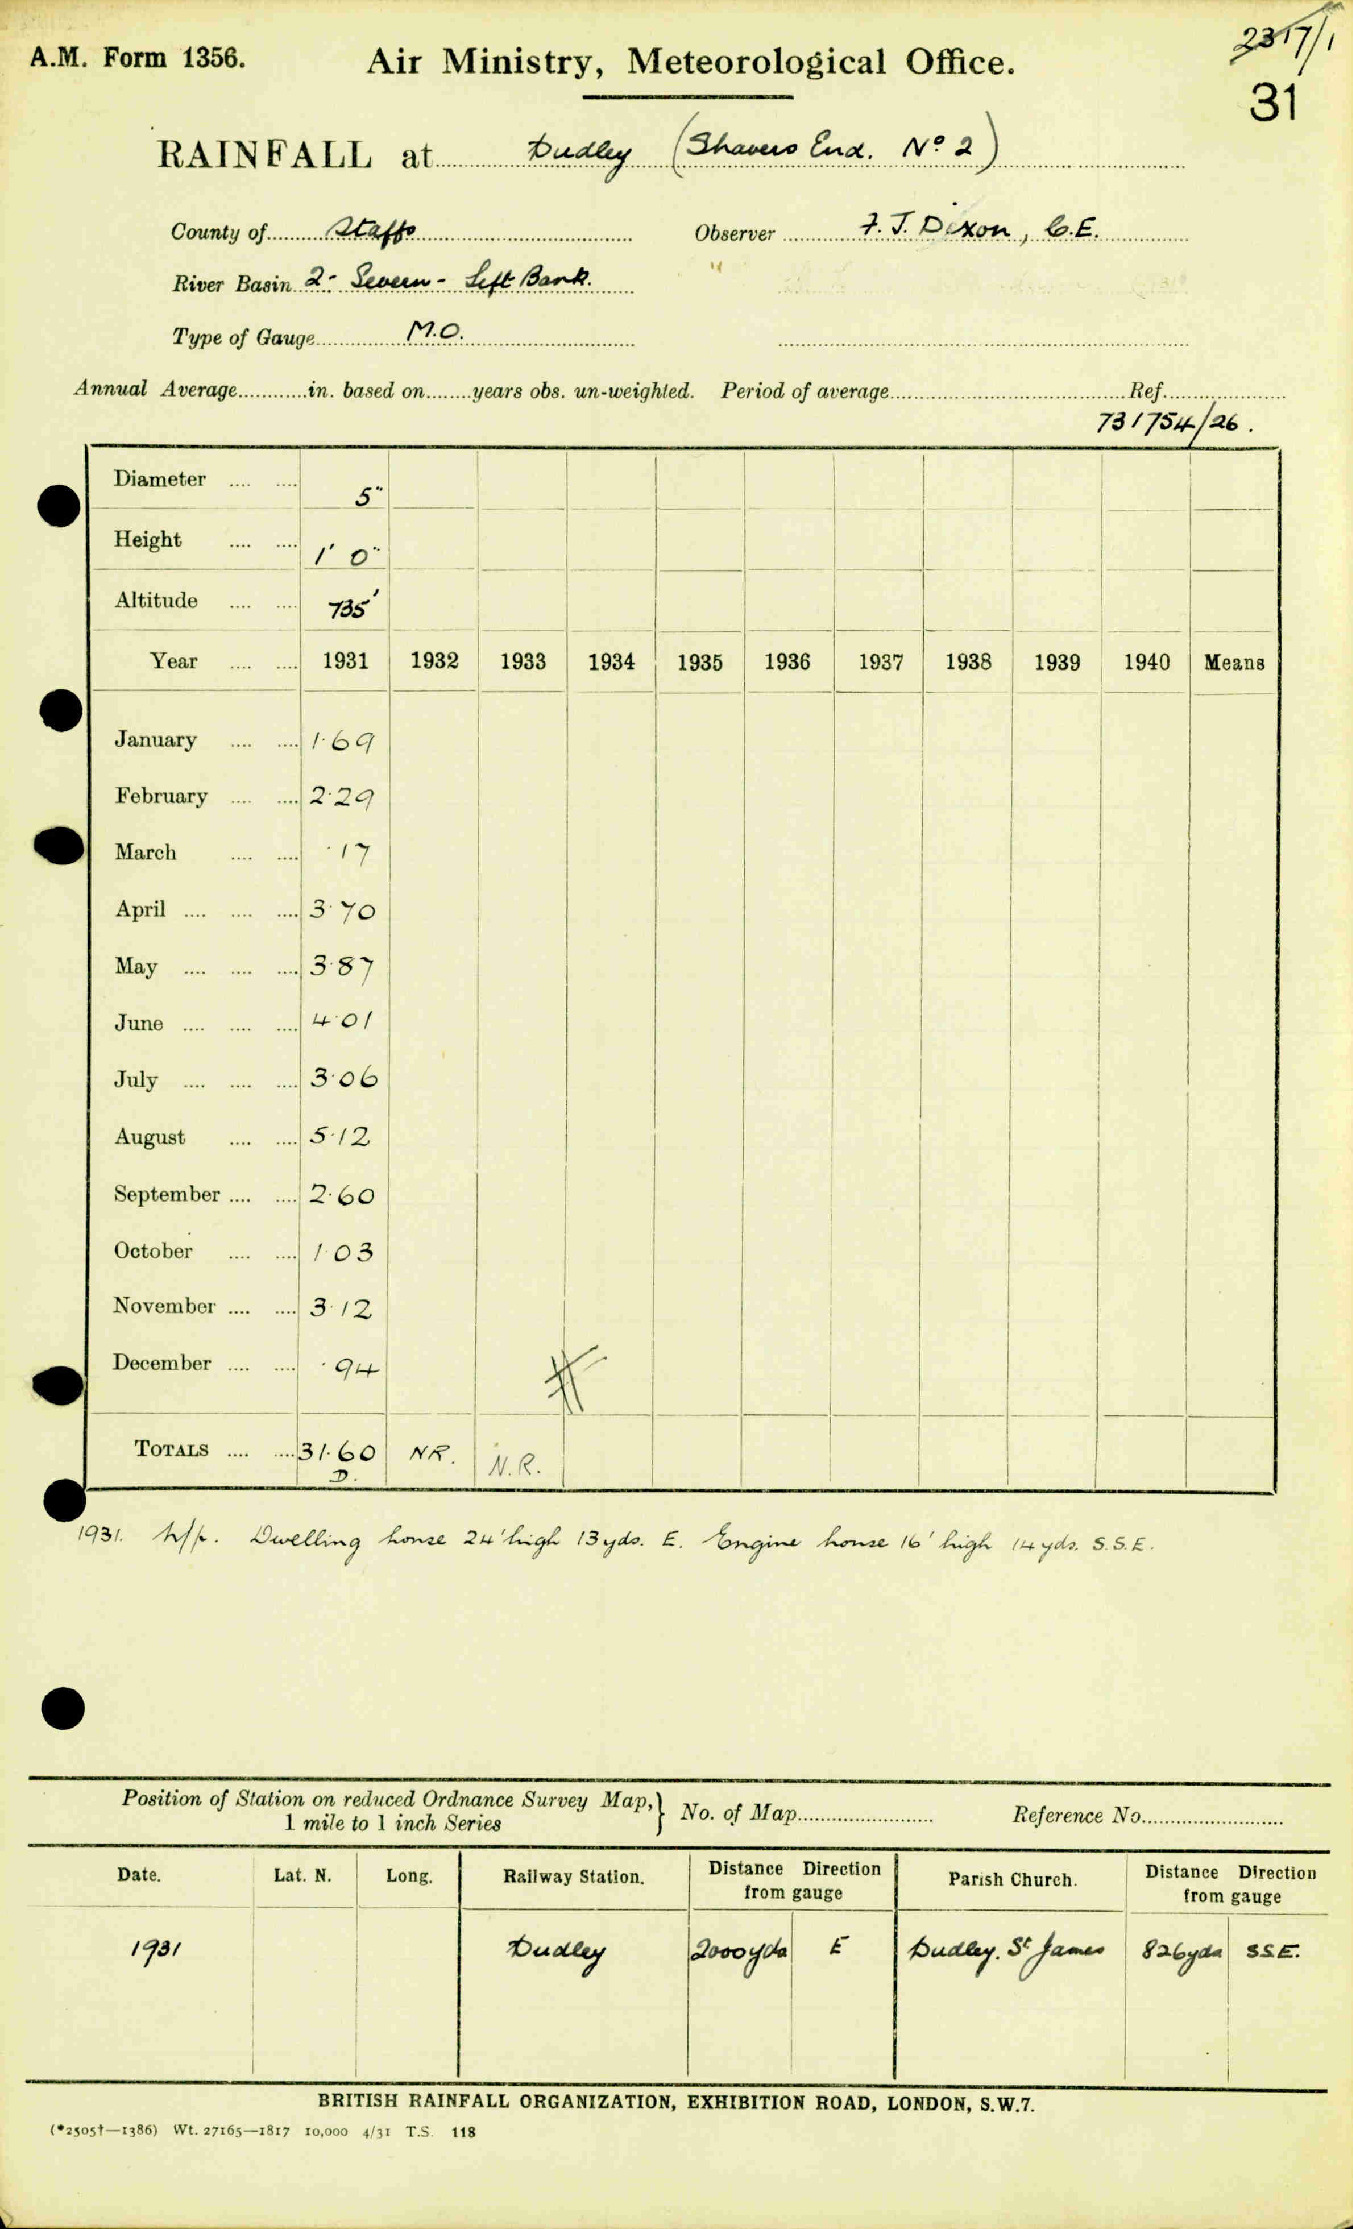 2317/1
A.M. Form 1356. Air Ministry, Meteorological Office.
31
RAINFALL at Dudley (Shavers End. Nº 2)
County of Staffs Observer F. J. Dixon, C.E.
River Basin 2 - Severn - Left Bank. "
Type of Gauge M.O.
Annual Average in. based on years obs. un-weighted. Period of average Ref.
731754/26.
Diameter 5"
Height 1' 0"
Altitude 735'
Year 1931 1932 1933 1934 1935 1936 1937 1938 1939 1940 Means
January 1.69
February 2.29
March .17
April 3.70
May 3.87
June 4.01
July 3.06
August 5.12
September 2.60
October 1.03
November 3.12
December .94
TOTALS 31.60 NR. N.R.
D.
1931. Dwelling house 24' high 13 yds. E. Engine house 16' high 14 yds. S.S.E.
Position of Station on reduced Ordnance Survey Map, } No. of Map Reference No.
1 mile to 1 inch Series
Date. Lat. N. Long. Railway Station. Distance Direction from gauge Parish Church. Distance Direction from gauge
1931 Dudley 2000 yds E Dudley. St James 826 yds S.S.E.
BRITISH RAINFALL ORGANIZATION, EXHIBITION ROAD, LONDON, S.W.7.
(*2505†—1386) Wt. 27165—1817 10,000 4/31 T.S. 118